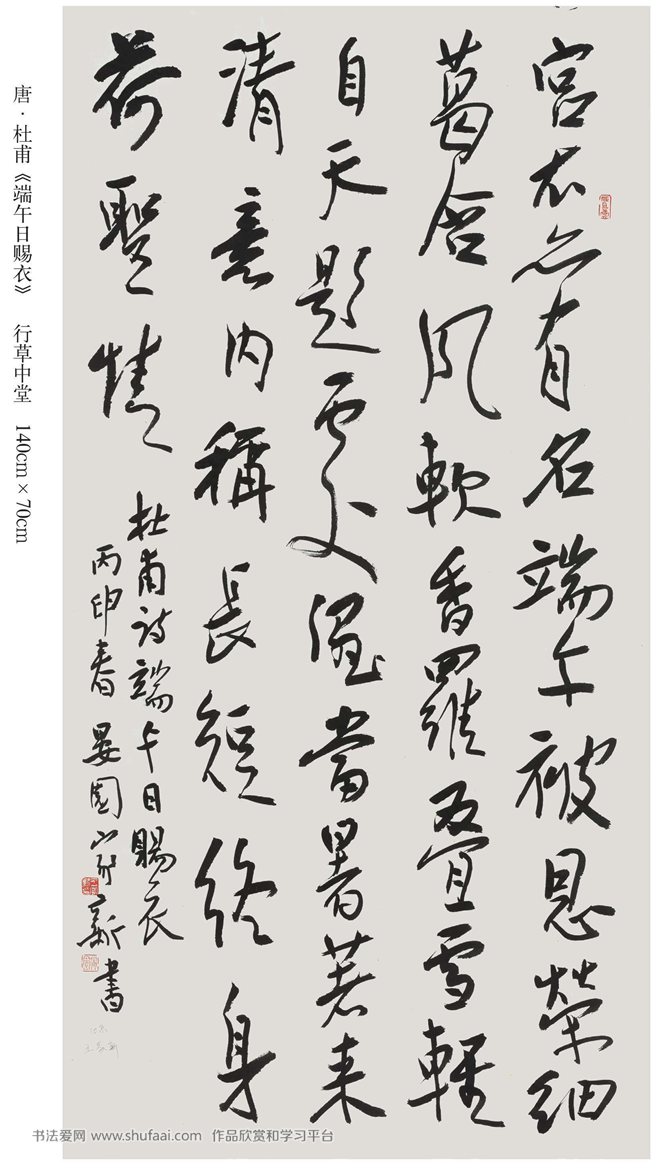 唐·杜甫《端午日赐衣》 行草中堂 140cm×70cm
宫衣亦有名端午被恩榮细
葛含风軟香羅叠雪輕
自天題處濕當暑著来
清意内稱長短终身
荷聖情
杜甫诗端午日賜衣
丙申春晏園家新書
书法爱网 www.shufaai.com 作品欣赏和学习平台